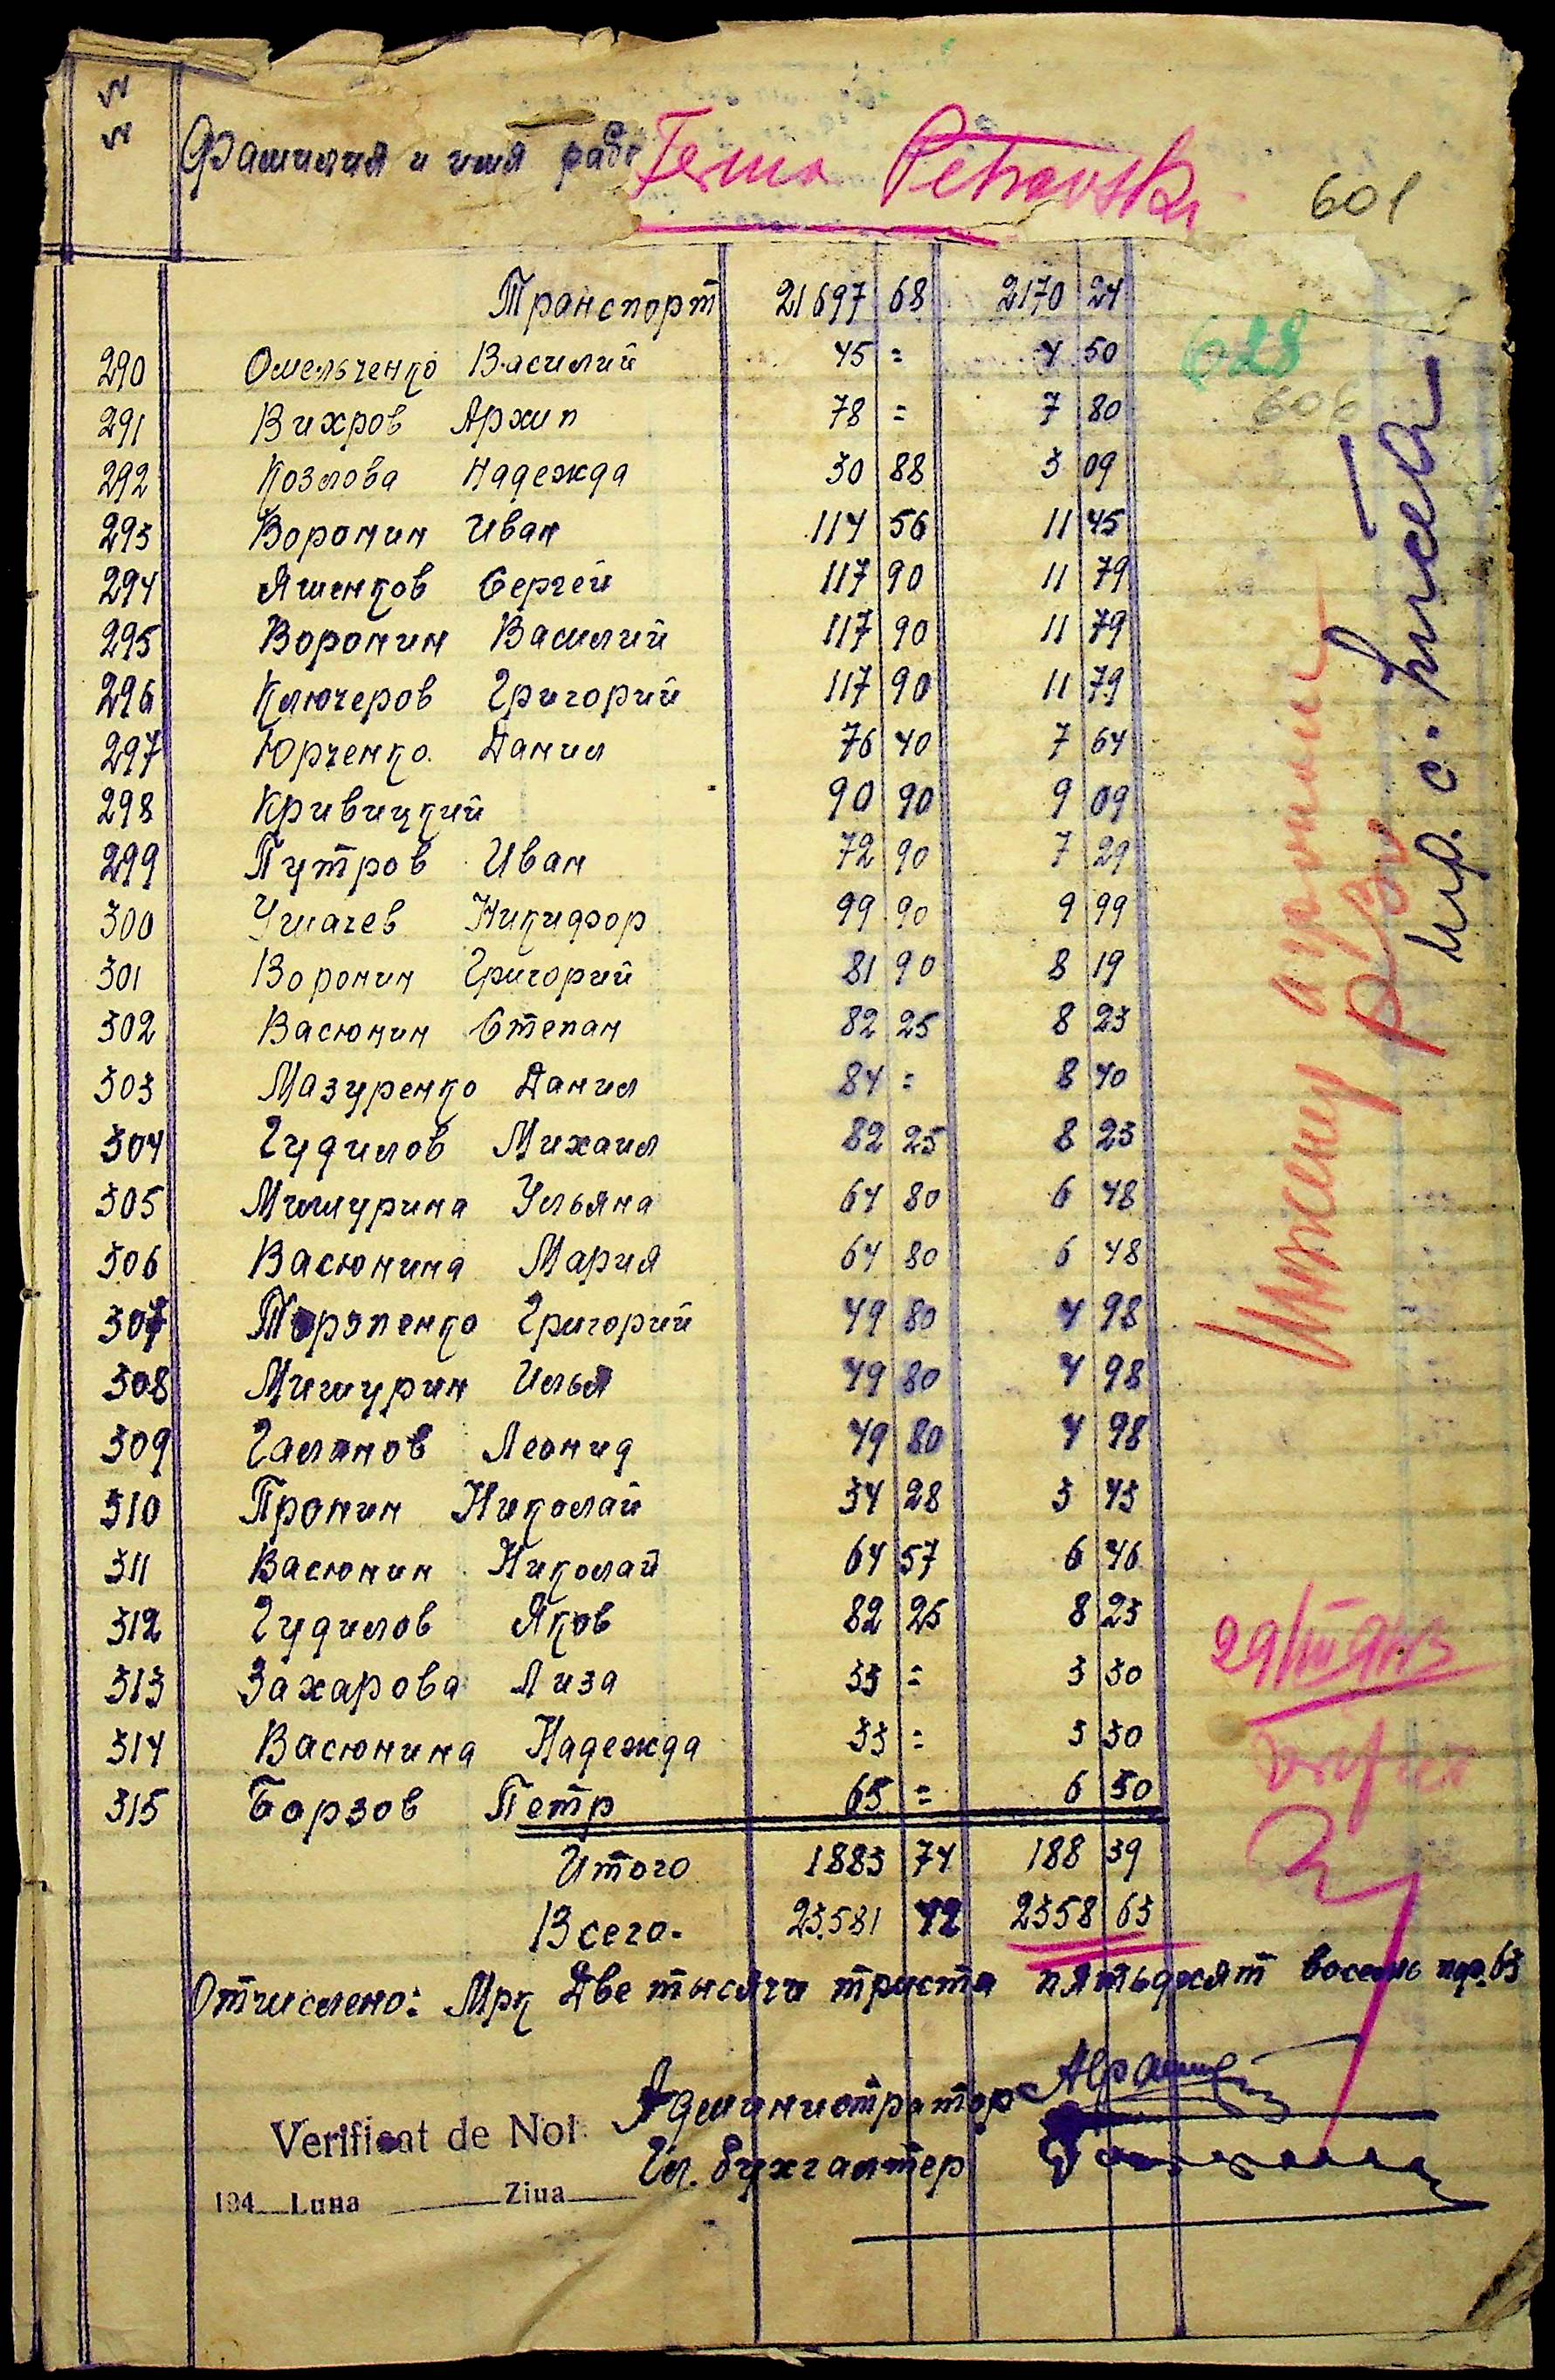 №
№
Фамилия и имя рабо
Ferma Petrovski
601
Транспорт 21697 68 2170 24
628
606
290 Омельченко Василий 45 = 4 50
291 Вихров Архип 78 = 7 80
292 Козлова Надежда 30 88 3 09
293 Воронин Иван 114 56 11 45
294 Яшенков Сергей 117 90 11 79
295 Воронин Василий 117 90 11 79
296 Ключеров Григорий 117 90 11 79
297 Юрченко Данил 76 40 7 64
298 Кривицкий 90 90 9 09
299 Путров Иван 72 90 7 29
300 Ушачев Никифор 99 90 9 99
301 Воронин Григорий 81 90 8 19
302 Васюнин Степан 82 25 8 23
303 Мазуренко Данил 84 = 8 40
304 Гудилов Михаил 82 25 8 23
305 Мишурина Ульяна 64 80 6 48
306 Васюнина Мария 64 80 6 48
307 Торопенко Григорий 49 80 4 98
308 Мишурин Илья 49 80 4 98
309 Галанов Леонид 49 80 4 98
310 Пронин Николай 34 28 3 43
311 Васюнин Николай 64 57 6 46
312 Гудилов Яков 82 25 8 23
313 Захарова Лиза 33 = 3 30
314 Васюнина Надежда 33 = 3 30
315 Борзов Петр 65 = 6 50
Итого 1883 74 188 39
Всего. 23.581 42 2358 63
Отчислено: Мрк Две тысячи триста пятьдесят восемь пф. 63
Администратор
Гл. бухгалтер
Verificat de Noi
194 Luna Ziua
29/III 943